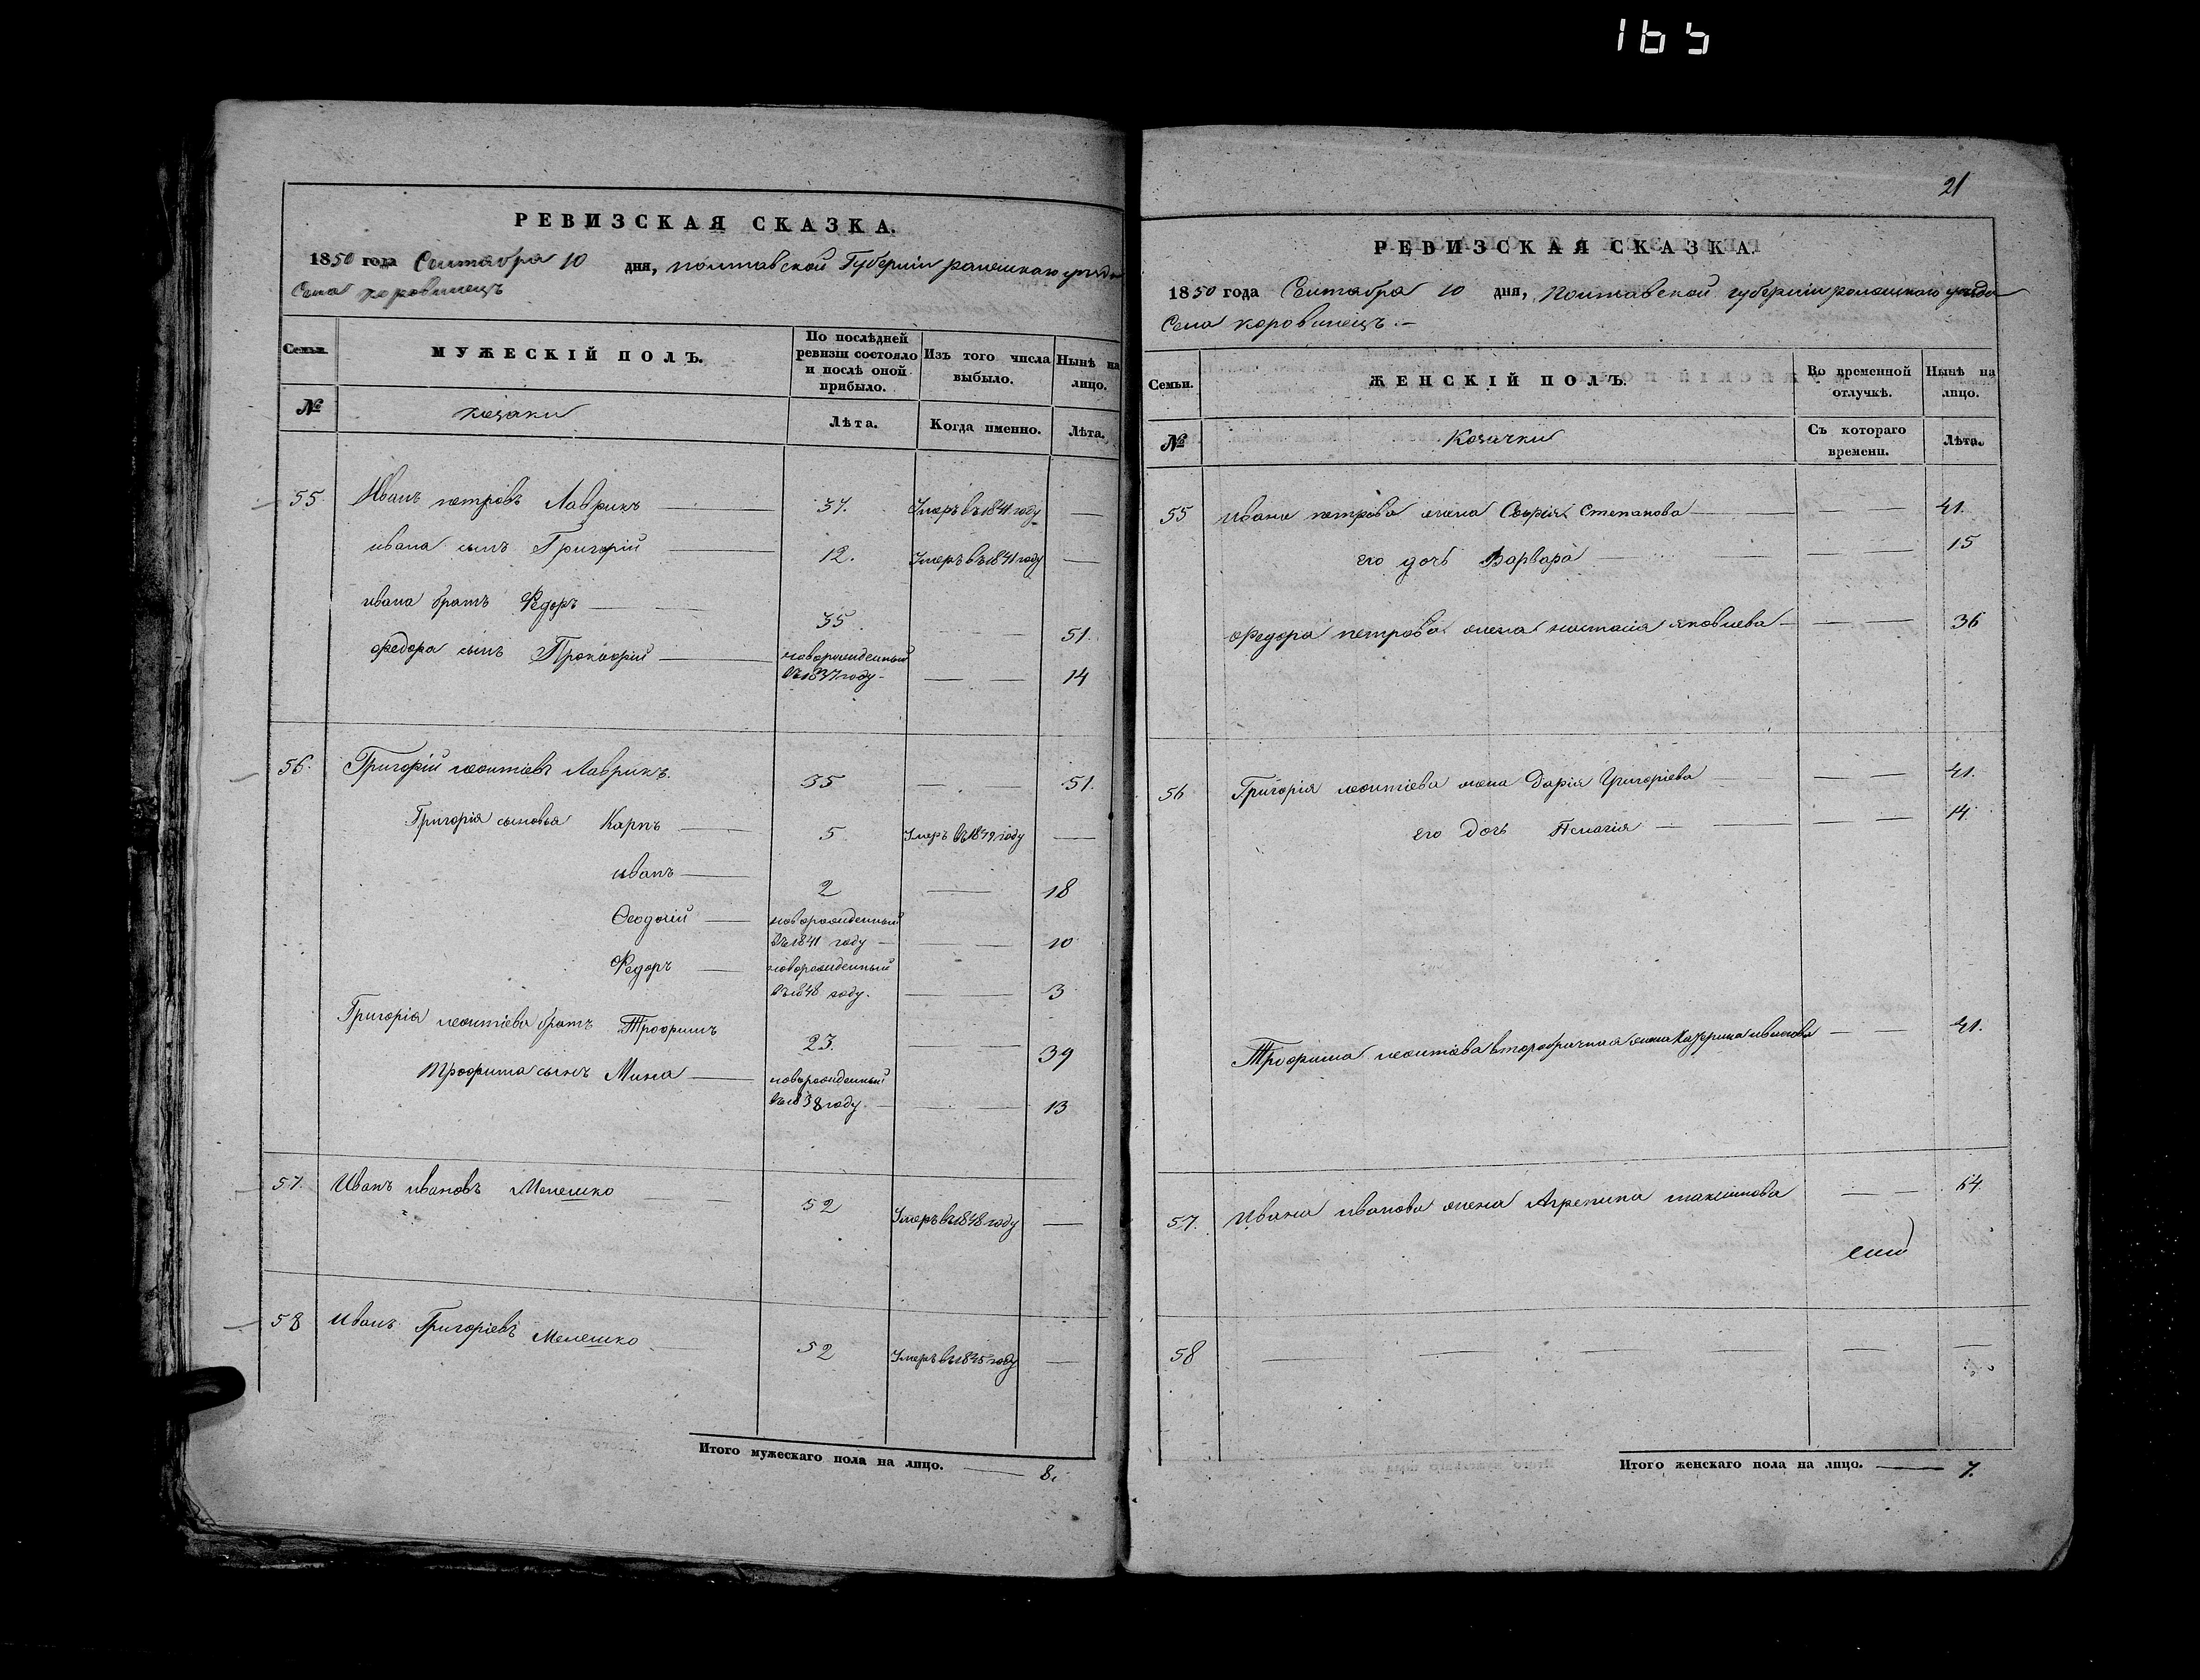 165
РЕВИЗСКАЯ СКАЗКА.
1850 года Сентабра 10 дня, полтавской Губерніи роменскаго уезда
Села коровинецъ
Семьи.
МУЖЕСКІЙ ПОЛЪ.
По послѣдней ревизіи состояло и послѣ оной прибыло.
Изъ того числа выбыло.
Нынѣ на лицо.
№
козаки
Лѣта.
Когда именно.
Лѣта.
55. Иванъ петровъ Лаврикъ 37. Умеръ въ 1841 году —
ивана сынъ Григорій 12. Умеръ въ 1841 году —
ивана братъ Федоръ 35. — — 51.
федора сынъ Прокофій новорожденный
въ 1837 году — — 14
56. Григорій леонтіевъ Лаврикъ. 35 — — 51.
Григорія сыновья Карпъ 5 Умеръ въ 1849 году —
иванъ 2 — 18
Феодосій новорожденный
въ 1841 году — — 10
Федоръ новорожденный
въ 1848 году. — 3
Григорія леонтіева братъ Трофимъ 23. — 39
Трофима сынъ Мина новорожденный
въ 1838 году — — 13
57. Иванъ ивановъ Мелешко 52 Умеръ въ 1848 году —
58 Иванъ Григоріевъ Мелешко 52 Умеръ въ 1845 году —
Итого мужескаго пола на лицо. — 8.
21
РЕВИЗСКАЯ СКАЗКА.
1850 года Сентабра 10 дня, Полтавской губерніи роменскаго уезда
Села коровинецъ. —
Семьи.
ЖЕНСКІЙ ПОЛЪ.
Во временной отлучкѣ.
Нынѣ на лицо.
№
Козачки
Съ котораго времени.
Лѣта.
55 Ивана петрова жена Софія Степанова — — 41.
его дочь Варвара — — 15
Федора петрова жена настасія яковлева — — — 36
56 Григорія леонтіева жена Дарія Григоріева — — 41.
его дочь Пелагія — — — 14.
Трофима леонтіева второбрачная жена Катерина иванова — — 41.
57. Ивана иванова жена Агрепина максимова — — 64.
58 — — — — — —
Итого женскаго пола на лицо. — 7.